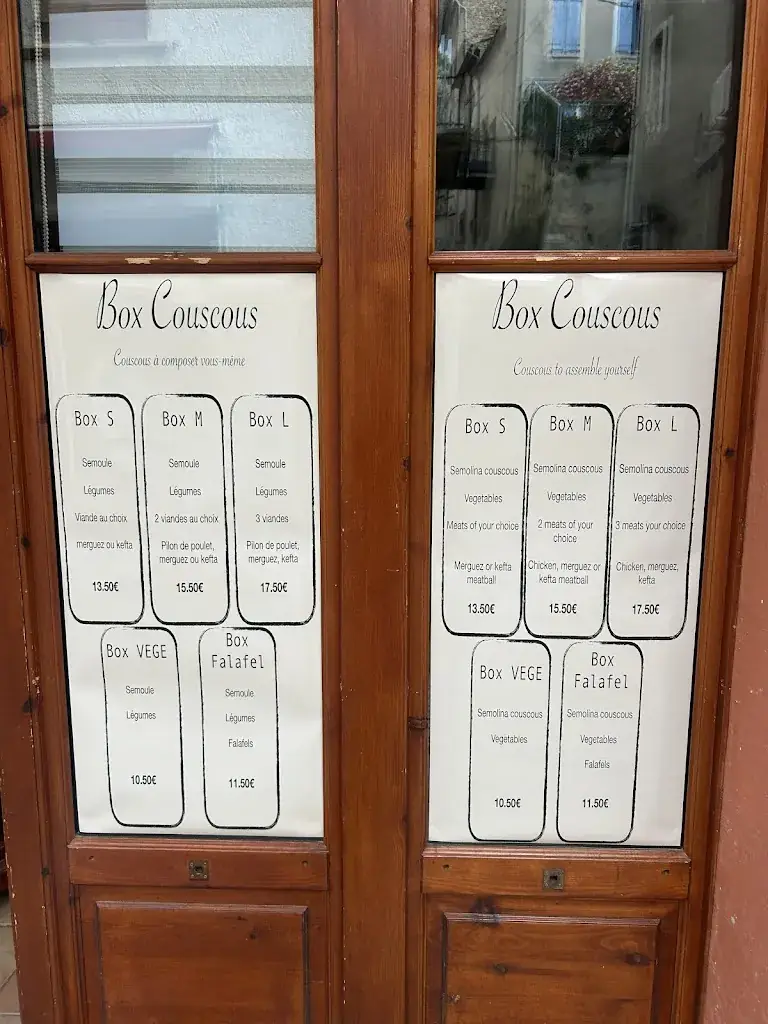 Box Couscous
Couscous à composer vous-même
Box S
Semoule
Légumes
Viande au choix
merguez ou kefta
13.50€
Box M
Semoule
Légumes
2 viandes au choix
Pilon de poulet,
merguez ou kefta
15.50€
Box L
Semoule
Légumes
3 viandes
Pilon de poulet,
merguez, kefta
17.50€
Box VEGE
Semoule
Légumes
10.50€
Box
Falafel
Semoule
Légumes
Falafels
11.50€
Box Couscous
Couscous to assemble yourself
Box S
Semolina couscous
Vegetables
Meats of your choice
Merguez or kefta
meatball
13.50€
Box M
Semolina couscous
Vegetables
2 meats of your
choice
Chicken, merguez or
kefta meatball
15.50€
Box L
Semolina couscous
Vegetables
3 meats your choice
Chicken, merguez,
kefta
17.50€
Box VEGE
Semolina couscous
Vegetables
10.50€
Box
Falafel
Semolina couscous
Vegetables
Falafels
11.50€